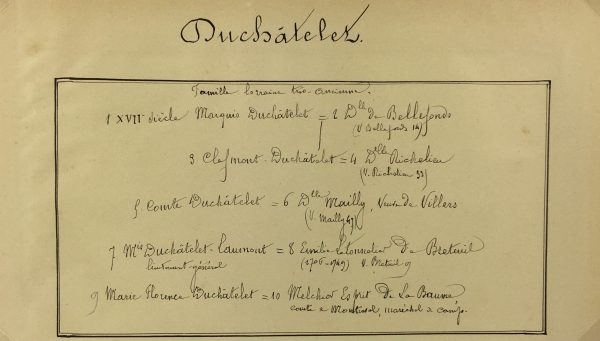 Duchâtelet.
Famille lorraine très-ancienne.
1 XVIIe siècle Marquis Duchâtelet = 2 Dlle de Bellefonds
(V. Bellefonds 14)
3 Clefmont-Duchâtelet = 4 Dlle Richelieu
(V. Richelieu 33)
5 Comte Duchâtelet = 6 Dlle Mailly, Veuve de Villers
(V. Mailly 47)
7 Mis Duchâtelet-Laumont = 8 Emilie Letonnelier De Breteuil
lieutenant-général (1706-1749) V. Breteuil 9
9 Marie Florence Duchâtelet = 10 Melchior Esprit De La Baume
comte de Montrevel, maréchal de camp.